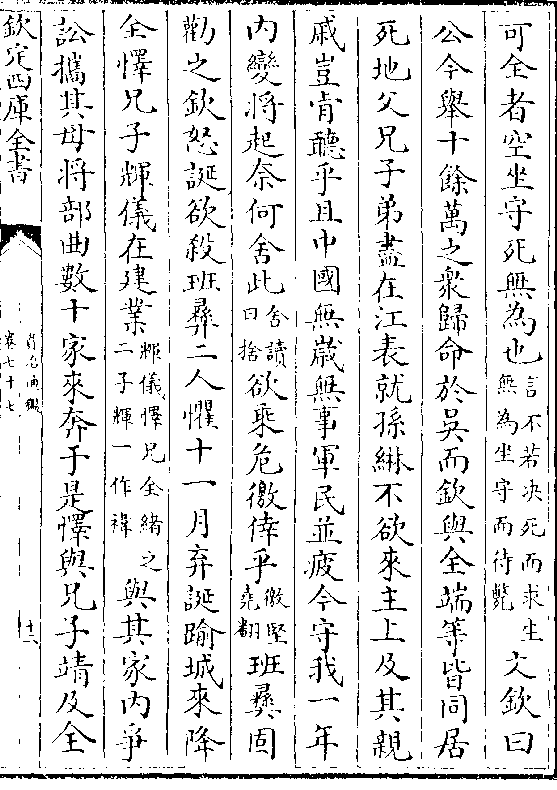 可全者空坐守死無為也言不若决死而求生無為坐守而待斃文欽曰
公今舉十餘萬之衆歸命於吳而欽與全端等皆同居
死地父兄子弟盡在江表就孫綝不欲來主上及其親
戚豈肯聽乎且中國無歲無事軍民並疲今守我一年
内變將起奈何舍此舍讀曰捨欲乘危徼倖乎徼堅堯翻班彞固
勸之欽怒誕欲殺班彞二人懼十一月弃誕踰城來降
全懌兄子輝儀在建業輝儀懌兄全緒之二子輝一作禕與其家内爭
訟攜其母將部曲數十家來奔于是懌與兄子靖及全
欽定四庫全書
卷七十七
十六